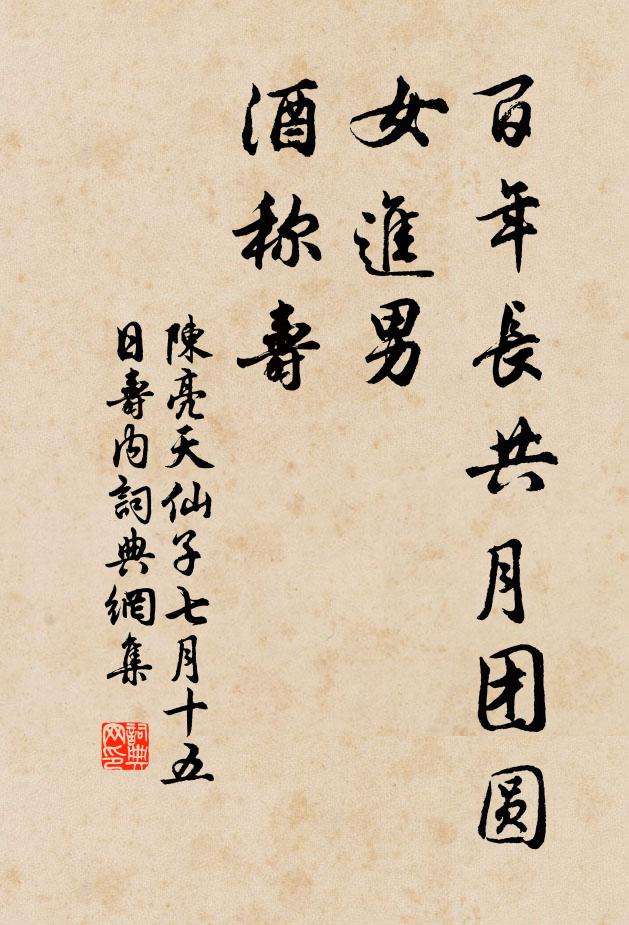 百年長共月团圆
女進男
酒称壽
陳亮天仙子七月十五
日壽内詞典網集
詞典网印